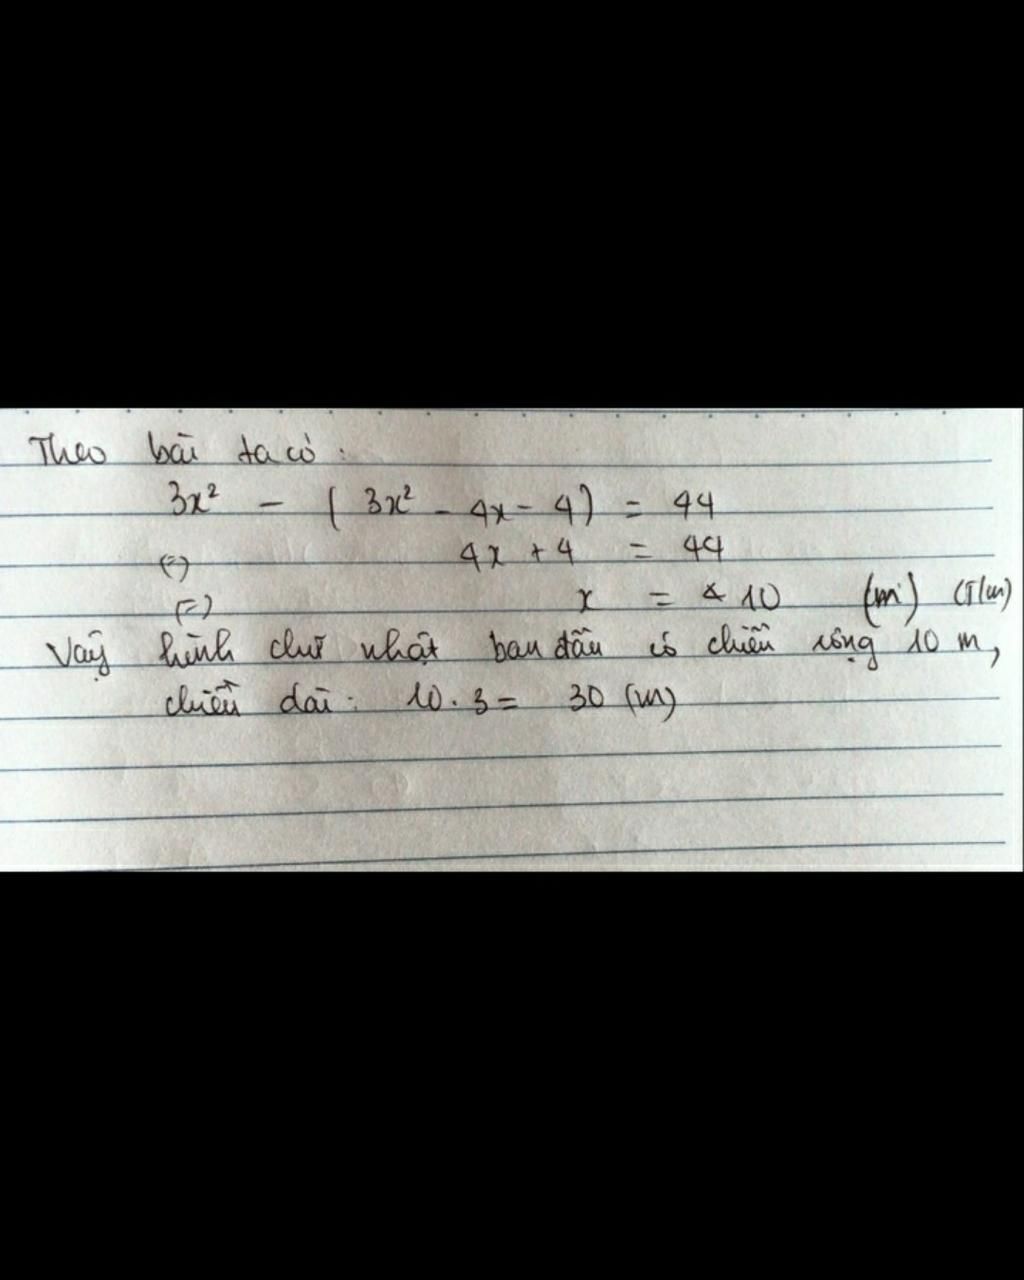 Theo bài ta có :
3x² - ( 3x² - 4x - 4) = 44
(=) 4x + 4 = 44
(=) x = 10 (m) (T/m)
Vậy hình chữ nhật ban đầu có chiều rộng 10 m,
chiều dài : 10 . 3 = 30 (m)